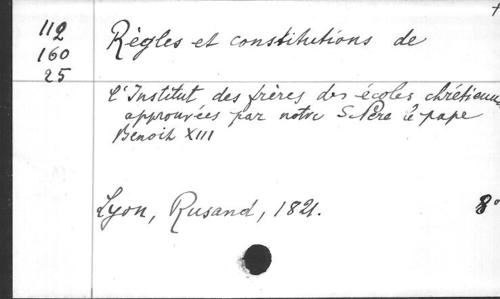 112
160
25
Règles et constitutions de
l'Institut des frères des écoles chrétiennes
approuvées par notre S. Père le pape
Benoit XIII
Lyon, Rusand, 1821.
8°